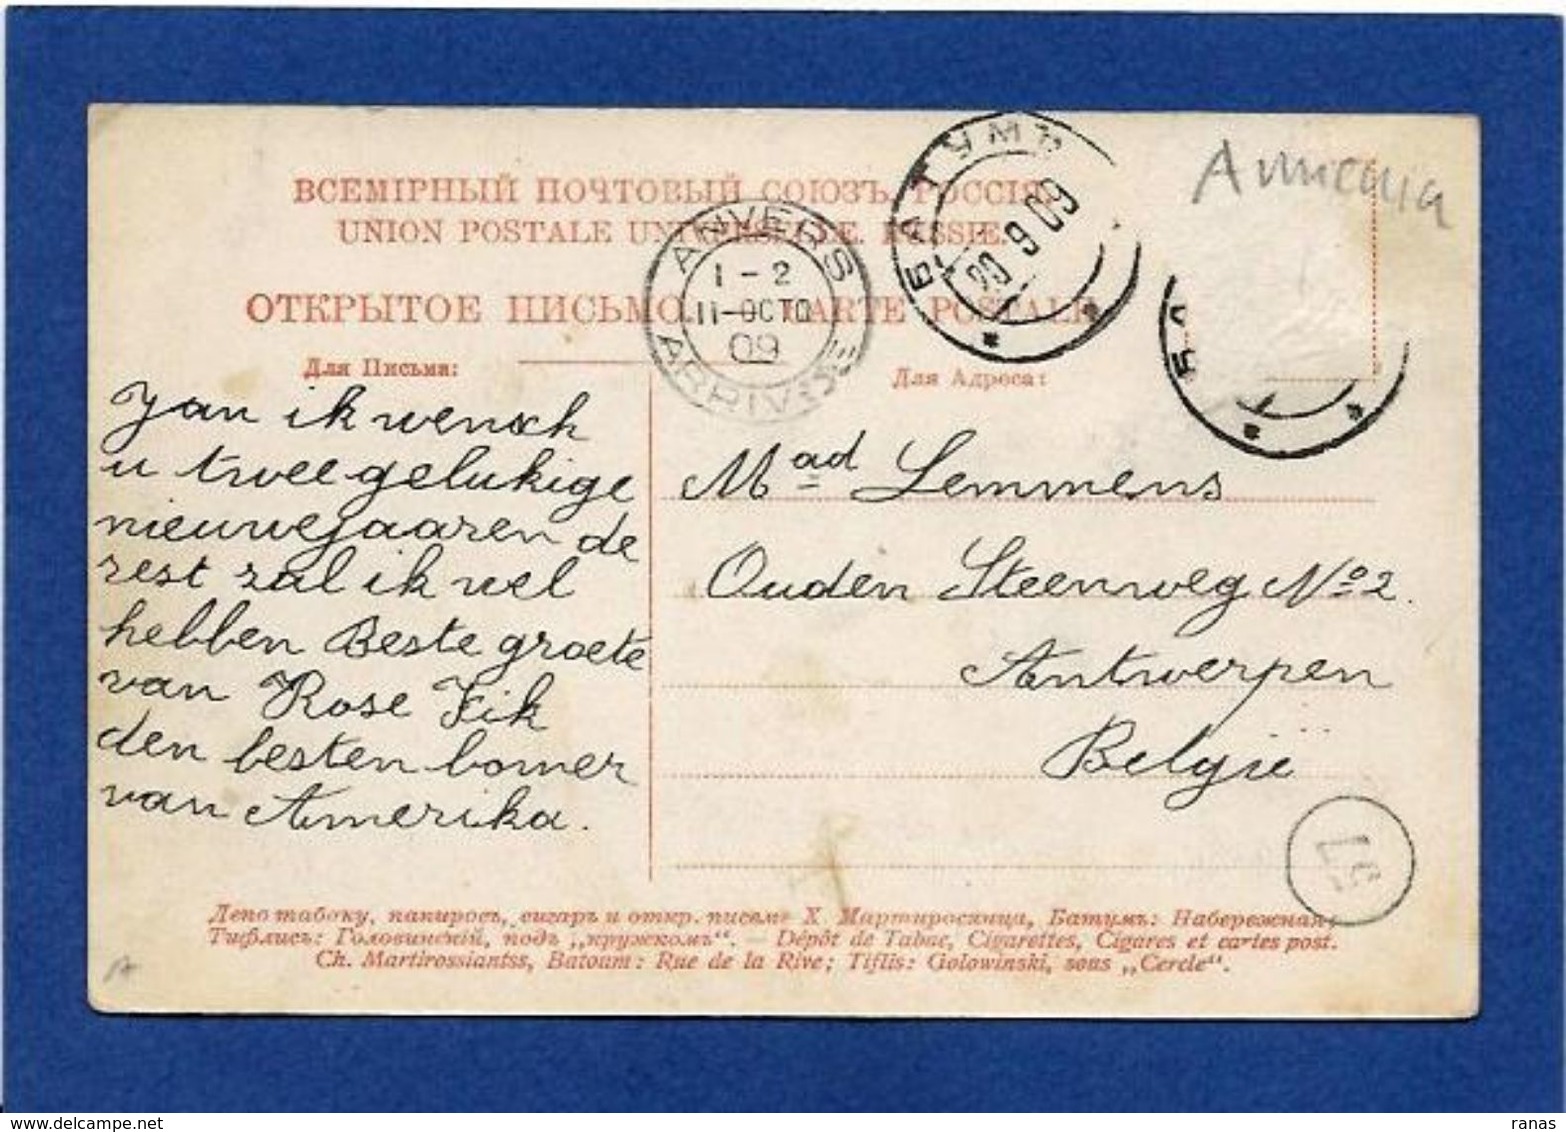 ВСЕМІРНЫЙ ПОЧТОВЫЙ СОЮЗЪ. РОССІЯ.
UNION POSTALE UNIVERSELLE. RUSSIE.
ОТКРЫТОЕ ПИСЬМО. CARTE POSTALE
БАТУМЪ
20 9 09
ANVERS
1-2
11-OCTO
09
ARRIVÉE
Armenia
БА
Для Письма:
Для Адреса:
Jan ik wensch
u twee gelukige
nieuwejaaren de
rest zal ik wel
hebben Beste groete
van Rose Fik
den besten bomer
van Amerika.
Mad Lemmens
Ouden Steenweg No 2.
Antwerpen
Belgie
57
Депо табаку, папиросъ, сигаръ и откр. письмѣ Х. Мартиросянца, Батумъ: Набережная;
Тифлисъ: Головинскій, подъ „кружкомъ“. — Dépôt de Tabac, Cigarettes, Cigares et cartes post.
Ch. Martirossiantss, Batoum: Rue de la Rive; Tiflis: Golowinski, sous „Cercle“.
ranas